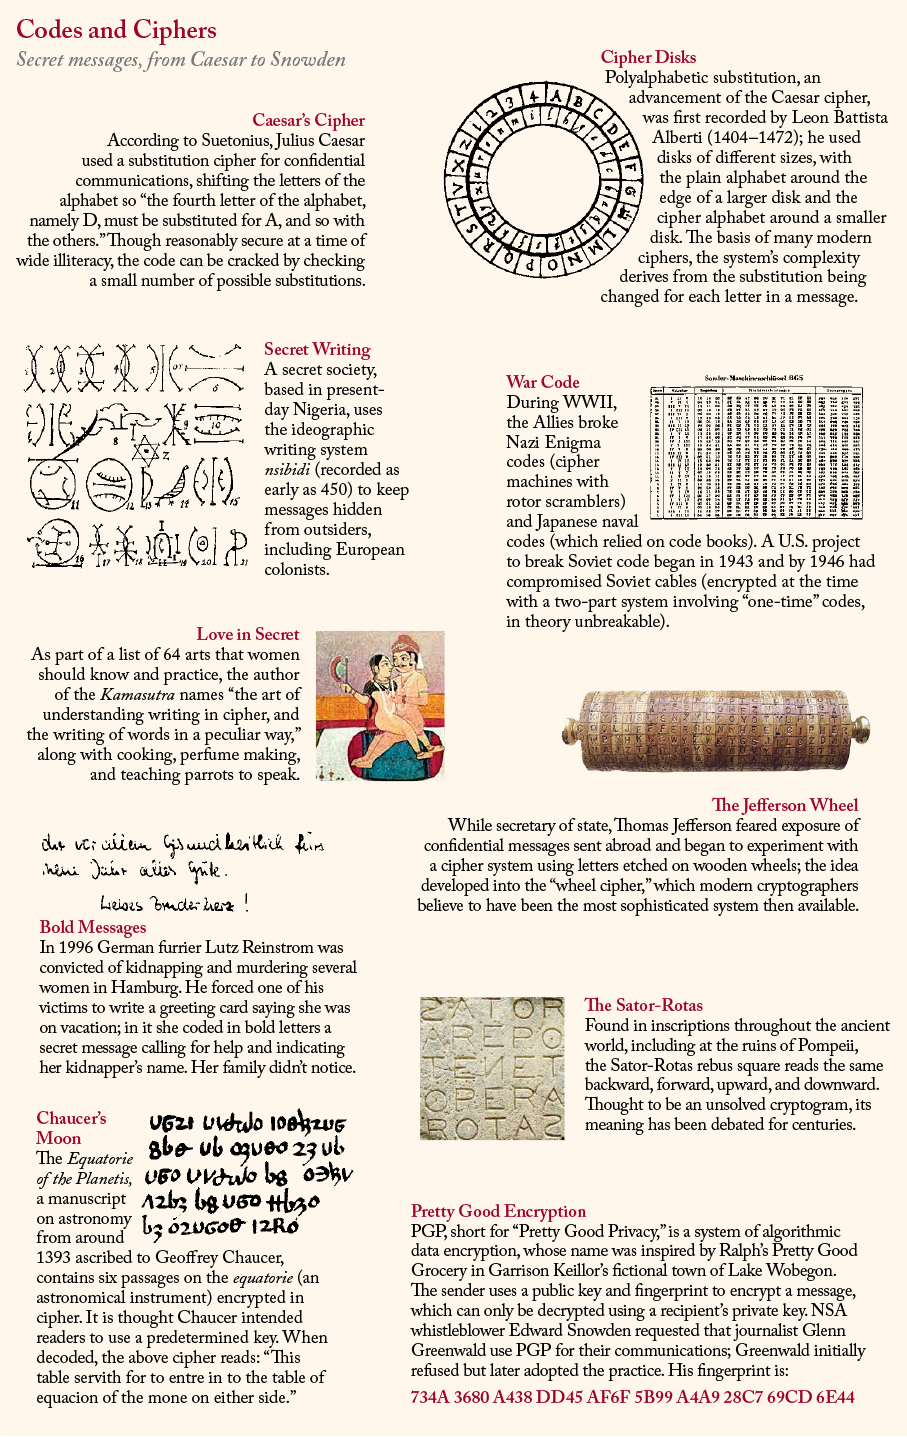 Codes and Ciphers
Secret messages, from Caesar to Snowden
Caesar's Cipher
According to Suetonius, Julius Caesar
used a substitution cipher for confidential
communications, shifting the letters of the
alphabet so “the fourth letter of the alphabet,
namely D, must be substituted for A, and so with
the others.” Though reasonably secure at a time of
wide illiteracy, the code can be cracked by checking
a small number of possible substitutions.
Cipher Disks
Polyalphabetic substitution, an
advancement of the Caesar cipher,
was first recorded by Leon Battista
Alberti (1404–1472); he used
disks of different sizes, with
the plain alphabet around the
edge of a larger disk and the
cipher alphabet around a smaller
disk. The basis of many modern
ciphers, the system's complexity
derives from the substitution being
changed for each letter in a message.
Secret Writing
A secret society,
based in present-
day Nigeria, uses
the ideographic
writing system
nsibidi (recorded as
early as 450) to keep
messages hidden
from outsiders,
including European
colonists.
War Code
During WWII,
the Allies broke
Nazi Enigma
codes (cipher
machines with
rotor scramblers)
and Japanese naval
codes (which relied on code books). A U.S. project
to break Soviet code began in 1943 and by 1946 had
compromised Soviet cables (encrypted at the time
with a two-part system involving “one-time” codes,
in theory unbreakable).
Sonder-Maschinenschlüssel BGS
Love in Secret
As part of a list of 64 arts that women
should know and practice, the author
of the Kamasutra names “the art of
understanding writing in cipher, and
the writing of words in a peculiar way,”
along with cooking, perfume making,
and teaching parrots to speak.
The Jefferson Wheel
While secretary of state, Thomas Jefferson feared exposure of
confidential messages sent abroad and began to experiment with
a cipher system using letters etched on wooden wheels; the idea
developed into the “wheel cipher,” which modern cryptographers
believe to have been the most sophisticated system then available.
vor allem gesundheitlich fürs
neue Jahr alles Gute.
Bold Messages
In 1996 German furrier Lutz Reinstrom was
convicted of kidnapping and murdering several
women in Hamburg. He forced one of his
victims to write a greeting card saying she was
on vacation; in it she coded in bold letters a
secret message calling for help and indicating
her kidnapper's name. Her family didn't notice.
SATOR
AREPO
TENET
OPERA
ROTAS
The Sator-Rotas
Found in inscriptions throughout the ancient
world, including at the ruins of Pompeii,
the Sator-Rotas rebus square reads the same
backward, forward, upward, and downward.
Thought to be an unsolved cryptogram, its
meaning has been debated for centuries.
Chaucer's
Moon
The Equatorie
of the Planetis,
a manuscript
on astronomy
from around
1393 ascribed to Geoffrey Chaucer,
contains six passages on the equatorie (an
astronomical instrument) encrypted in
cipher. It is thought Chaucer intended
readers to use a predetermined key. When
decoded, the above cipher reads: “This
table servith for to entre in to the table of
equacion of the mone on either side.”
Pretty Good Encryption
PGP, short for “Pretty Good Privacy,” is a system of algorithmic
data encryption, whose name was inspired by Ralph's Pretty Good
Grocery in Garrison Keillor's fictional town of Lake Wobegon.
The sender uses a public key and fingerprint to encrypt a message,
which can only be decrypted using a recipient's private key. NSA
whistleblower Edward Snowden requested that journalist Glenn
Greenwald use PGP for their communications; Greenwald initially
refused but later adopted the practice. His fingerprint is:
734A 3680 A438 DD45 AF6F 5B99 A4A9 28C7 69CD 6E44